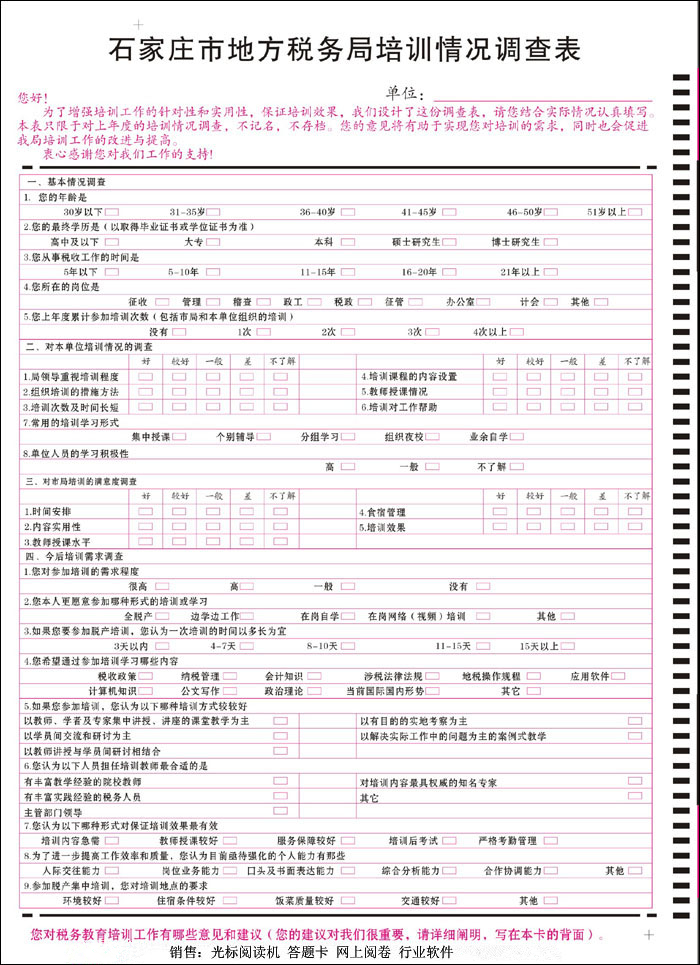 石家庄市地方税务局培训情况调查表
单位：
您好！
为了增强培训工作的针对性和实用性，保证培训效果，我们设计了这份调查表，请您结合实际情况认真填写。
本表只限于对上年度的培训情况调查，不记名，不存档。您的意见将有助于实现您对培训的需求，同时也会促进
我局培训工作的改进与提高。
衷心感谢您对我们工作的支持！
一、基本情况调查
1. 您的年龄是
30岁以下 31-35岁 36-40岁 41-45岁 46-50岁 51岁以上
2.您的最终学历是（以取得毕业证书或学位证书为准）
高中及以下 大专 本科 硕士研究生 博士研究生
3.您从事税收工作的时间是
5年以下 5-10年 11-15年 16-20年 21年以上
4.您所在的岗位是
征收 管理 稽查 政工 税政 征管 办公室 计会 其他
5.您上年度累计参加培训次数（包括市局和本单位组织的培训）
没有 1次 2次 3次 4次以上
二、对本单位培训情况的调查
好 较好 一般 差 不了解 好 较好 一般 差 不了解
1.局领导重视培训程度 4.培训课程的内容设置
2.组织培训的措施方法 5.教师授课情况
3.培训次数及时间长短 6.培训对工作帮助
7.常用的培训学习形式
集中授课 个别辅导 分组学习 组织夜校 业余自学
8.单位人员的学习积极性
高 一般 不了解
三、对市局培训的满意度调查
好 较好 一般 差 不了解 好 较好 一般 差 不了解
1.时间安排 4.食宿管理
2.内容实用性 5.培训效果
3.教师授课水平
四、今后培训需求调查
1.您对参加培训的需求程度
很高 高 一般 没有
2.您本人更愿意参加哪种形式的培训或学习
全脱产 边学边工作 在岗自学 在岗网络（视频）培训 其他
3.如果您要参加脱产培训，您认为一次培训的时间以多长为宜
3天以内 4-7天 8-10天 11-15天 15天以上
4.您希望通过参加培训学习哪些内容
税收政策 纳税管理 会计知识 涉税法律法规 地税操作规程 应用软件
计算机知识 公文写作 政治理论 当前国际国内形势 其它
5.如果您参加培训，您认为以下哪种培训方式较较好
以教师、学者及专家集中讲授、讲座的课堂教学为主 以有目的的实地考察为主
以学员间交流和研讨为主 以解决实际工作中的问题为主的案例式教学
以教师讲授与学员间研讨相结合
6.您认为以下人员担任培训教师最合适的是
有丰富教学经验的院校教师 对培训内容最具权威的知名专家
有丰富实践经验的税务人员 其它
主管部门领导
7.您认为以下哪种形式对保证培训效果最有效
培训内容急需 教师授课较好 服务保障较好 培训后考试 严格考勤管理
8.为了进一步提高工作效率和质量，您认为目前亟待强化的个人能力有那些
人际交往能力 岗位业务能力 口头及书面表达能力 综合分析能力 合作协调能力 其他
9.参加脱产集中培训，您对培训地点的要求
环境较好 住宿条件较好 饭菜质量较好 交通较好 其他
您对税务教育培训工作有哪些意见和建议（您的建议对我们很重要，请详细阐明，写在本卡的背面）。
销售：光标阅读机 答题卡 网上阅卷 行业软件